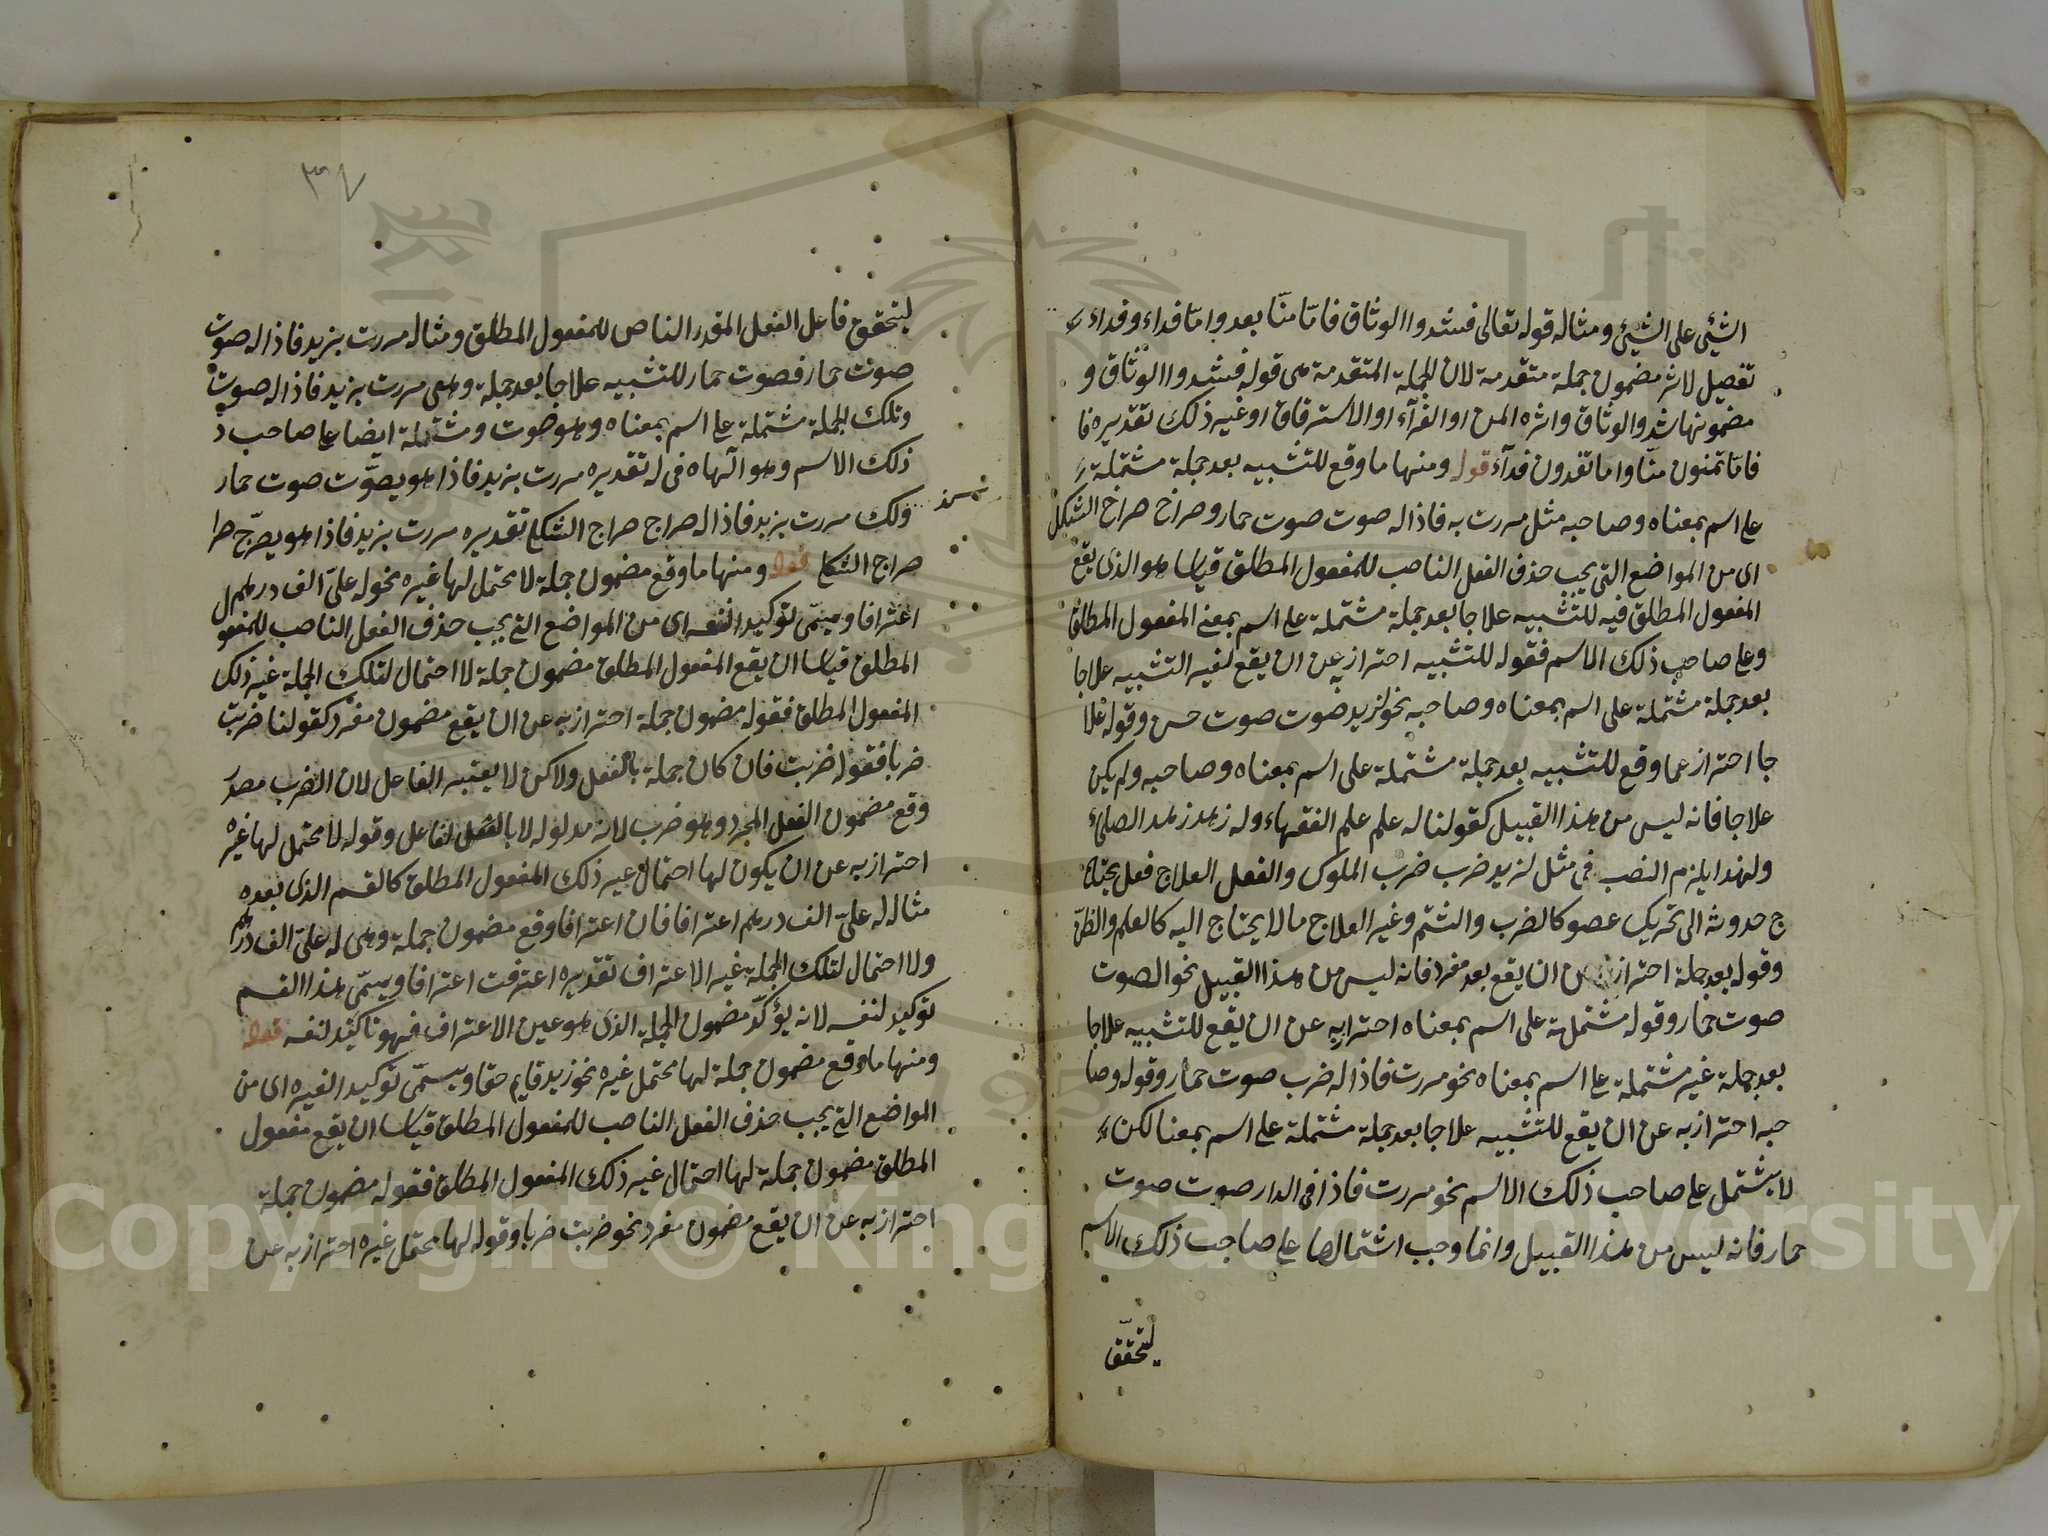 الشئ على الشئ ومثاله قوله تعالى فشدوا الوثاق فاما منّا بعد واما فداء وفداء
تفصيل لاثر مضمون جملة متقدمة لان الجملة المتقدمة هى قوله فشدوا الوثاق و
مضمونها شد الوثاق واثره المن او الفدآء او الاسترقاق او غير ذلك تقديره فا
فاما تمنون منّا واما تفدون فدآء قوله ومنها ما وقع للتشبيه بعد جملة مشتملة
على اسم بمعناه وصاحبه مثل مررت به فاذا له صوت صوت حمار وصراخ صراخ الثكلى
اى من المواضع التى يجب حذف الفعل الناصب للمفعول المطلق قياسا هو الذى يقع
المفعول المطلق فيه للتشبيه علاجا بعد جملة مشتملة على اسم بمعنى المفعول المطلق
وعلى صاحب ذلك الاسم فقوله للتشبيه احتراز عن ان يقع لغير التشبيه علاجا
بعد جملة مشتملة على اسم بمعناه وصاحبه نحو لزيد صوت صوت حسن وقوله علا
جا احتراز عما وقع للتشبيه بعد جملة مشتملة على اسم بمعناه وصاحبه ولم يكن
علاجا فانه ليس من هذا القبيل كقولنا له علم علم الفقهاء وله زهد زهد الصلحاء
ولهذا يلزم النصب فى مثل لزيد ضرب ضرب الملوك والفعل العلاج فعل يحتا
ج حدوثه الى تحريك عضو كالضرب والشتم وغير العلاج ما لا يحتاج اليه كالعلم والظن
وقوله بعد جملة احتراز عن ان يقع بعد مفرد فانه ليس من هذا القبيل نحو الصوت
صوت حمار وقوله مشتملة على اسم بمعناه احتراز به عن ان يقع للتشبيه علاجا
بعد جملة غير مشتملة على اسم بمعناه نحو مررت فاذا له ضرب صوت حمار وقوله وصا
حبه احتراز به عن ان يقع للتشبيه علاجا بعد جملة مشتملة على اسم بمعنا لكن
لا يشتمل على صاحب ذلك الاسم نحو مررت فاذا فى الدار صوت صوت
حمار فانه ليس من هذا القبيل وانما وجب اشتمالها على صاحب ذلك الاسم
ليتحقق
٣٧
ليتحقق فاعل الفعل المقدر الناصب للمفعول المطلق ومثاله مررت بزيد فاذا له صوت
صوت حمار فصوت حمار للتشبيه علاجا بعد جملة وهى مررت بزيد فاذا له صوت
وتلك الجملة مشتملة على اسم بمعناه وهو صوت وشتملة ايضا على صاحب ذ
ذلك الاسم وهو الهاء فى له تقديره مررت بزيد فاذا هو يصوّت صوت حمار
ولك مررت بزيد فاذا له صراخ صراخ الثكلى تقديره مررت بزيد فاذا هو يصرّخ صرا
صراخ الثكلى قوله ومنها ما وقع مضمون جملة لا محتمل لها غيره نحو له علىّ الف درهم ل
اعترافا ويسمّى توكيدا لنفسه اى من المواضع التى يجب حذف الفعل الناصب للمفعو
المطلق قياسا ان يقع المفعول المطلق مضمون جملة لا احتمال لتلك الجملة غير ذلك
المفعول المطلق فقوله مضمون جملة احتراز به عن ان يقع مضمون مفرد كقولنا ضربت
ضربا فقوله ضربت فان كان جملة بالفعل ولاكن لا يعتبر الفاعل لان الضرب مصدر
وقع مضمون الفعل المجرد وهو ضرب لانه مدلوله لا بالفعل لفاعل وقوله لا محتمل لها غيره
احتراز به عن ان يكون لها احتمال غير ذلك المفعول المطلق كالقسم الذى بعده
مثاله له علىّ الف درهم اعترافا فان اعترافا وقع مضمون جملة وهى له علىّ الف درهم
ولا احتمال لتلك الجملة غير الاعتراف تقديره اعترفت اعترافا ويسمّى هذا القسم
توكيد لنفسه لانه يؤكّد مضمون الجملة الذى هو عين الاعتراف فهو تاكيد لنفسه قوله
ومنها ما وقع مضمون جملة لها محتمل غيره نحو زيد قايم حقا ويسمّى توكيد الغيره اى من
المواضع التى يجب حذف الفعل الناصب للمفعول المطلق قياسا ان يقع مفعول
المطلق مضمون جملة لها احتمال غير ذلك المفعول المطلق فقوله مضمون جملة
احتراز به عن ان يقع مضمون مفرد نحو ضربت ضربا وقوله لها محتمل غيره احتراز به عن
Copyright © King Saud University